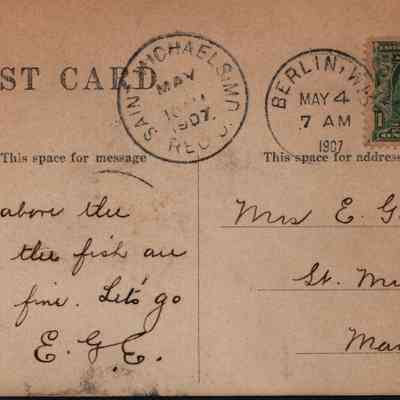 ST CARD.
SAINT MICHAELS, MD.
MAY
1907.
REC'D.
BERLIN, WIS
MAY 4
7 AM
1907
1
This space for message
This space for address
above the
the fish are
fine. Let's go
E. G. E.
Mrs E. G
St. Mi
Mar